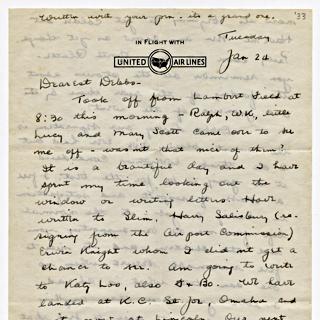 Written with your pen. its a grand one.
'33
Tuesday
Jan 24
IN FLIGHT WITH
UNITED AIR LINES
Dearest Debbs-
Took off from Lambert Field at
8:30 this morning - Ralph, W.K., little
Lucy and Mary Scott came out to see
me off - wasn't that nice of them?
It is a beautiful day and I have
spent my time looking out the
window or writing letters. Have
written to Slim, Harry Salisbury (re-
signing from the Airport Commission)
Erwin Knight whom I didn't get a
chance to see. Am going to write
to Katy Loo, also & Bo. We have
landed at K.C. St Joe, Omaha and
next at Lincoln. Our next